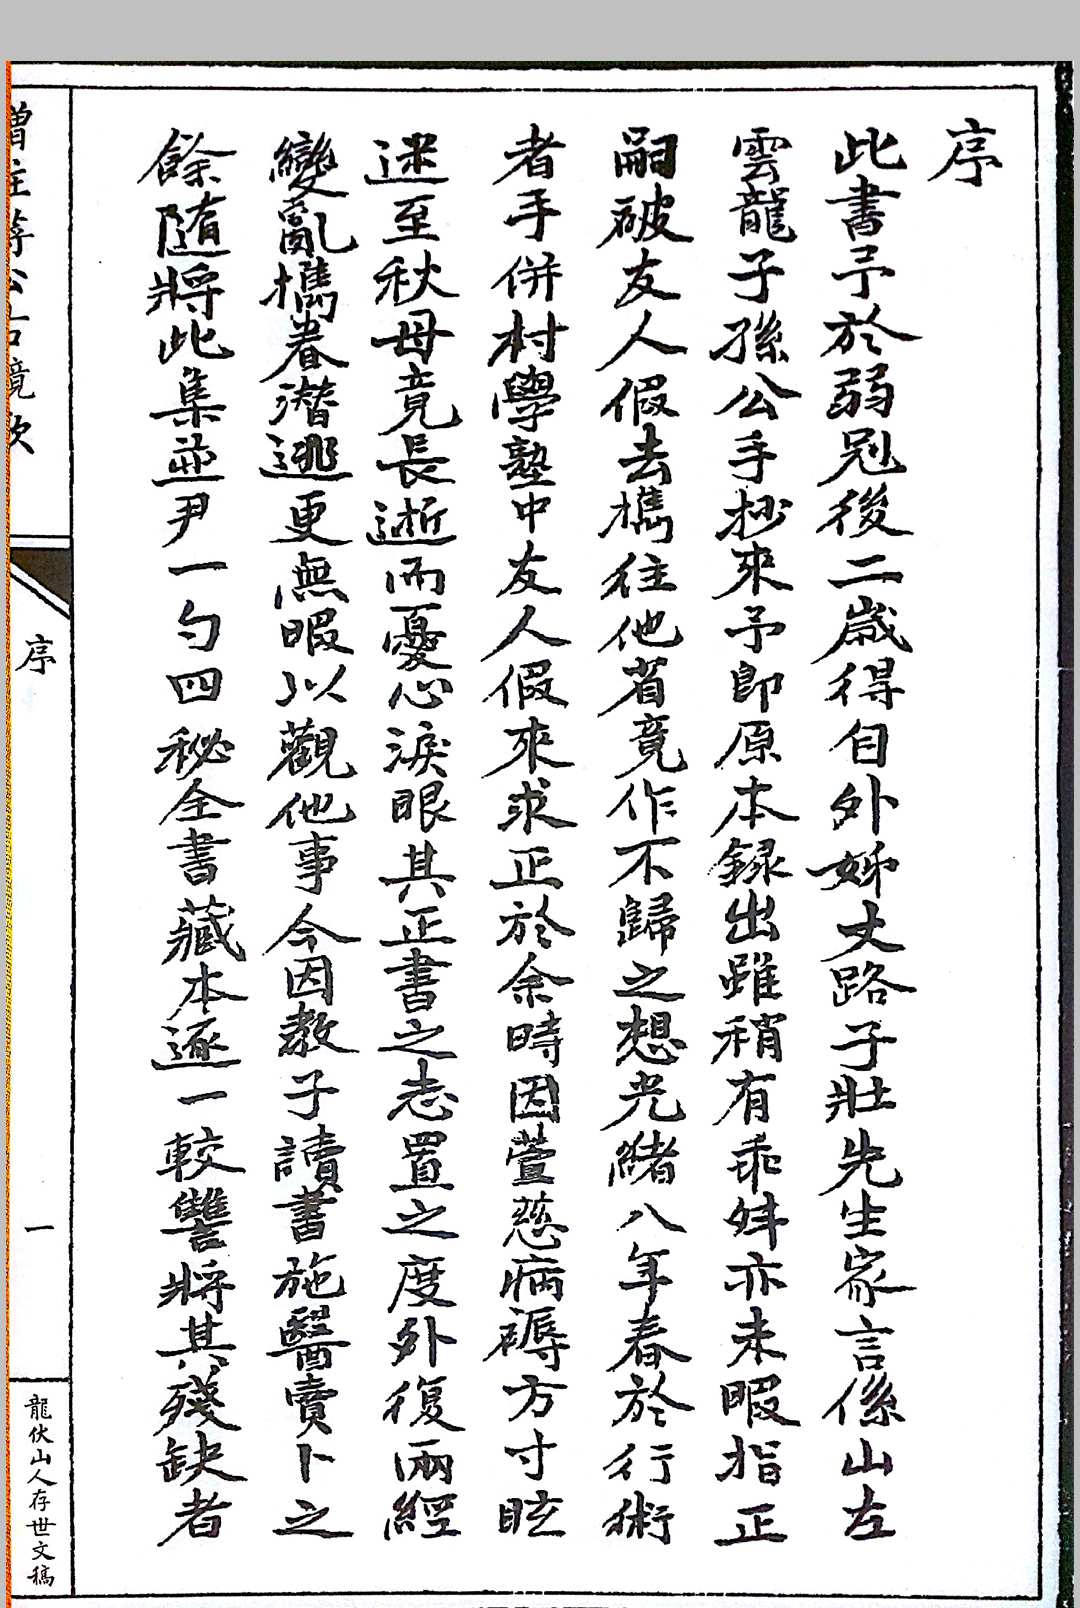 序
此書予於弱冠後二歲得自外姊丈路子壯先生家言係山左
雲龍子孫公手抄來予即原本録出雖稍有乖舛亦未暇指正
嗣破友人假去擕往他省竟作不歸之想光緒八年春於行術
者手併村學塾中友人假來求正於余時因萱慈病褥方寸眩
迷至秋母竟長逝而憂心淚眼其正書之志置之度外復兩經
變亂擕眷潛逃更無暇以觀他事今因教子讀書施醫賣卜之
餘隨將此集並尹一勺四秘全書藏本逐一較讐將其殘缺者
序
一
龍伏山人存世文稿